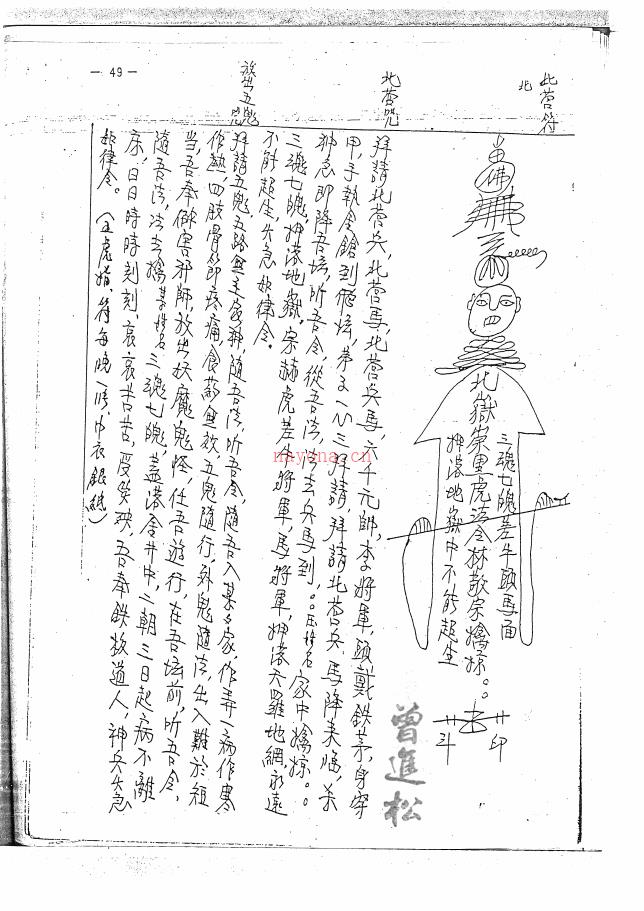 北營符
北
佛
北嶽崇里虎法令林敬宗擒掠。。
三魂七魄差牛頭馬面
押落地獄中不能起生
斗
印
曾進松
北營咒
拜請北營兵,北營馬,北營兵馬,六千元帥,李將軍,頭戴鉄茅,身穿
甲,手執令鎗到壇,弟子一心三拜請,拜請北營兵馬降來臨,
神急即降吾壇,听吾令,從吾法,法去兵馬到。。庄姓名家中擒掠。。
三魂七魄,押落地獄,宗赫虎差牛將軍,馬將軍,押落天羅地網,永遠
不能起生,火急如律令。
放出五鬼咒
拜請五鬼五路無主家神,隨吾法,听吾令,隨吾入某家,作弄一病作寒
作熱,四肢骨節疼痛,食葯無效,五鬼隨行,外鬼隨法,出入難於短
當,吾奉傷害邪師,放出妖魔鬼怪,任吾遊行,在吾壇前,听吾令,
隨吾法,法去擒某姓名三魂七魄,蓋落舍井中,二朝三日起病不離
床,日日時時刻刻,哀哀苦苦,受災殃,吾奉鉄板道人,神兵火急
如律令。(五虎指,符每晚一條,巾衣銀紙)
— 49 —
nayona.cn